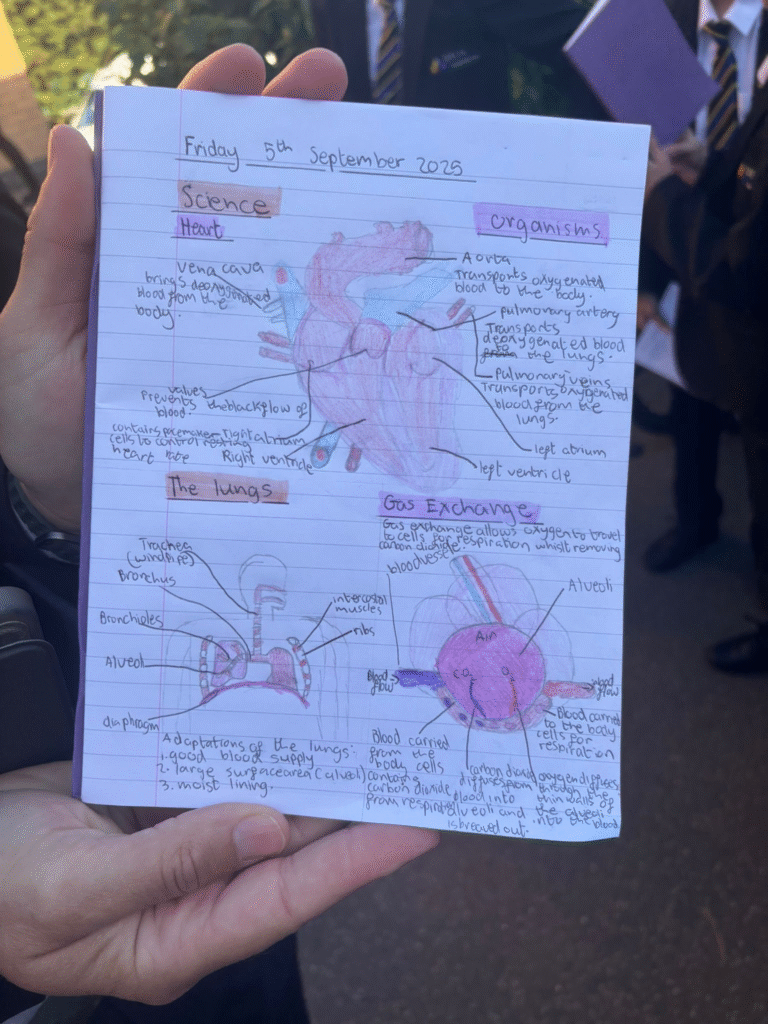 Friday 5th September 2025
Science
Heart
organisms
Vena cava
brings deoxygenated
blood from the
body.
Aorta
Transports oxygenated
blood to the body.
pulmonary artery
Transports
deoxygenated blood
to the lungs.
Pulmonary veins
Transports oxygenated
blood from the
lungs.
valves
Prevents the backflow of
blood.
contains pacemaker
cells to control resting
heart rate
Right atrium
Right ventricle
left atrium
left ventricle
The lungs
Trachea
(windpipe)
Bronchus
Bronchioles
Alveoli
diaphragm
intercostal
muscles
ribs
Adaptations of the lungs:
1. good blood supply
2. large surface area (alveoli)
3. moist lining.
Gas Exchange
Gas exchange allows oxygen to travel
to cells for respiration whilst removing
carbon dioxide.
blood vessel
Alveoli
Air
CO2
O2
Blood
flow
blood
flow
Blood carried
from the
body cells
contains
carbon dioxide
from respiration
carbon dioxide
diffuses from
blood into
alveoli and
is breathed out.
oxygen diffuses
through the
thin walls of
the alveoli
into the blood
Blood carried
to the body
cells for
respiration